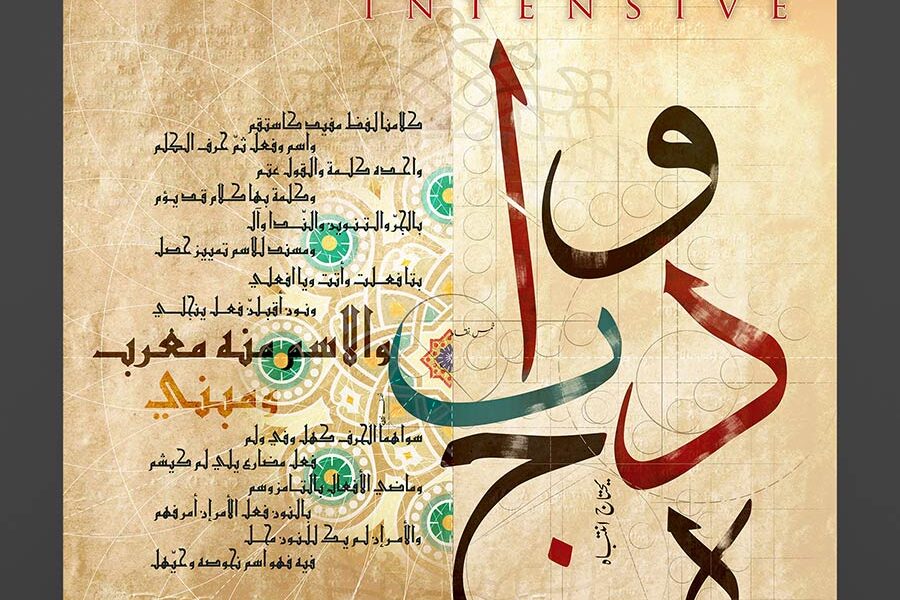 INTENSIVE
كلامنا لفظ مفيد كاستقم
واسم وفعل ثمّ حرف الكلم
واحده كلمة والقول عم
وكلمة بها كلام قد يؤم
بالجرّ والتنوين والنّدا وأل
ومسند للاسم تمييز حصل
بتا فعلت وأتت ويا افعلي
ونون أقبلنّ فعل ينجلي
والاسم منه معرب
ومبني
سواهما الحرف كهل وفي ولم
فعل مضارع يلي لم كيشم
وماضي الأفعال بالتا مز وسم
بالنون فعل الأمر إن أمر فهم
والأمر إن لم يك للنون محل
فيه فهو اسم نحو صه وحيّهل
و
ا
د
ب
ج
خمس نقاط
يحتاج انتباه